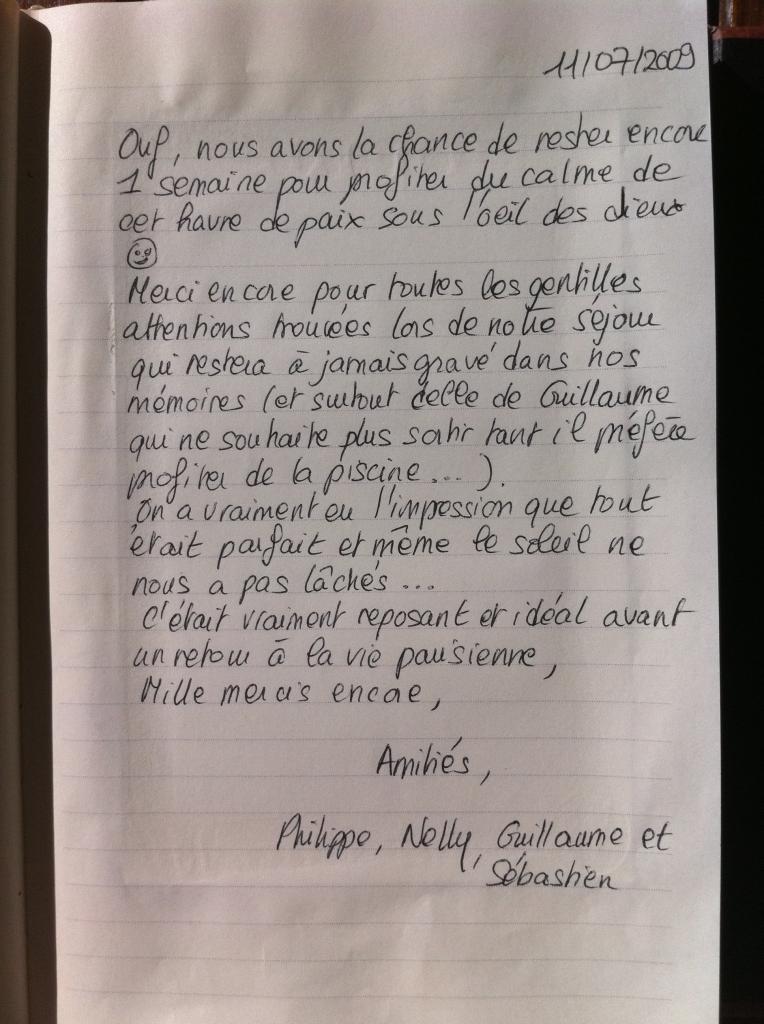 11/07/2009
Ouf, nous avons la chance de rester encore
1 semaine pour profiter du calme de
cet havre de paix sous l'oeil des dieux
Merci encore pour toutes les gentilles
attentions trouvées lors de notre séjour
qui restera à jamais gravé dans nos
mémoires (et surtout celle de Guillaume
qui ne souhaite plus sortir tant il préfère
profiter de la piscine...).
On a vraiment eu l'impression que tout
était parfait et même le soleil ne
nous a pas lâchés...
C'était vraiment reposant et idéal avant
un retour à la vie parisienne,
Mille mercis encore,
Amitiés,
Philippe, Nelly, Guillaume et
Sébastien